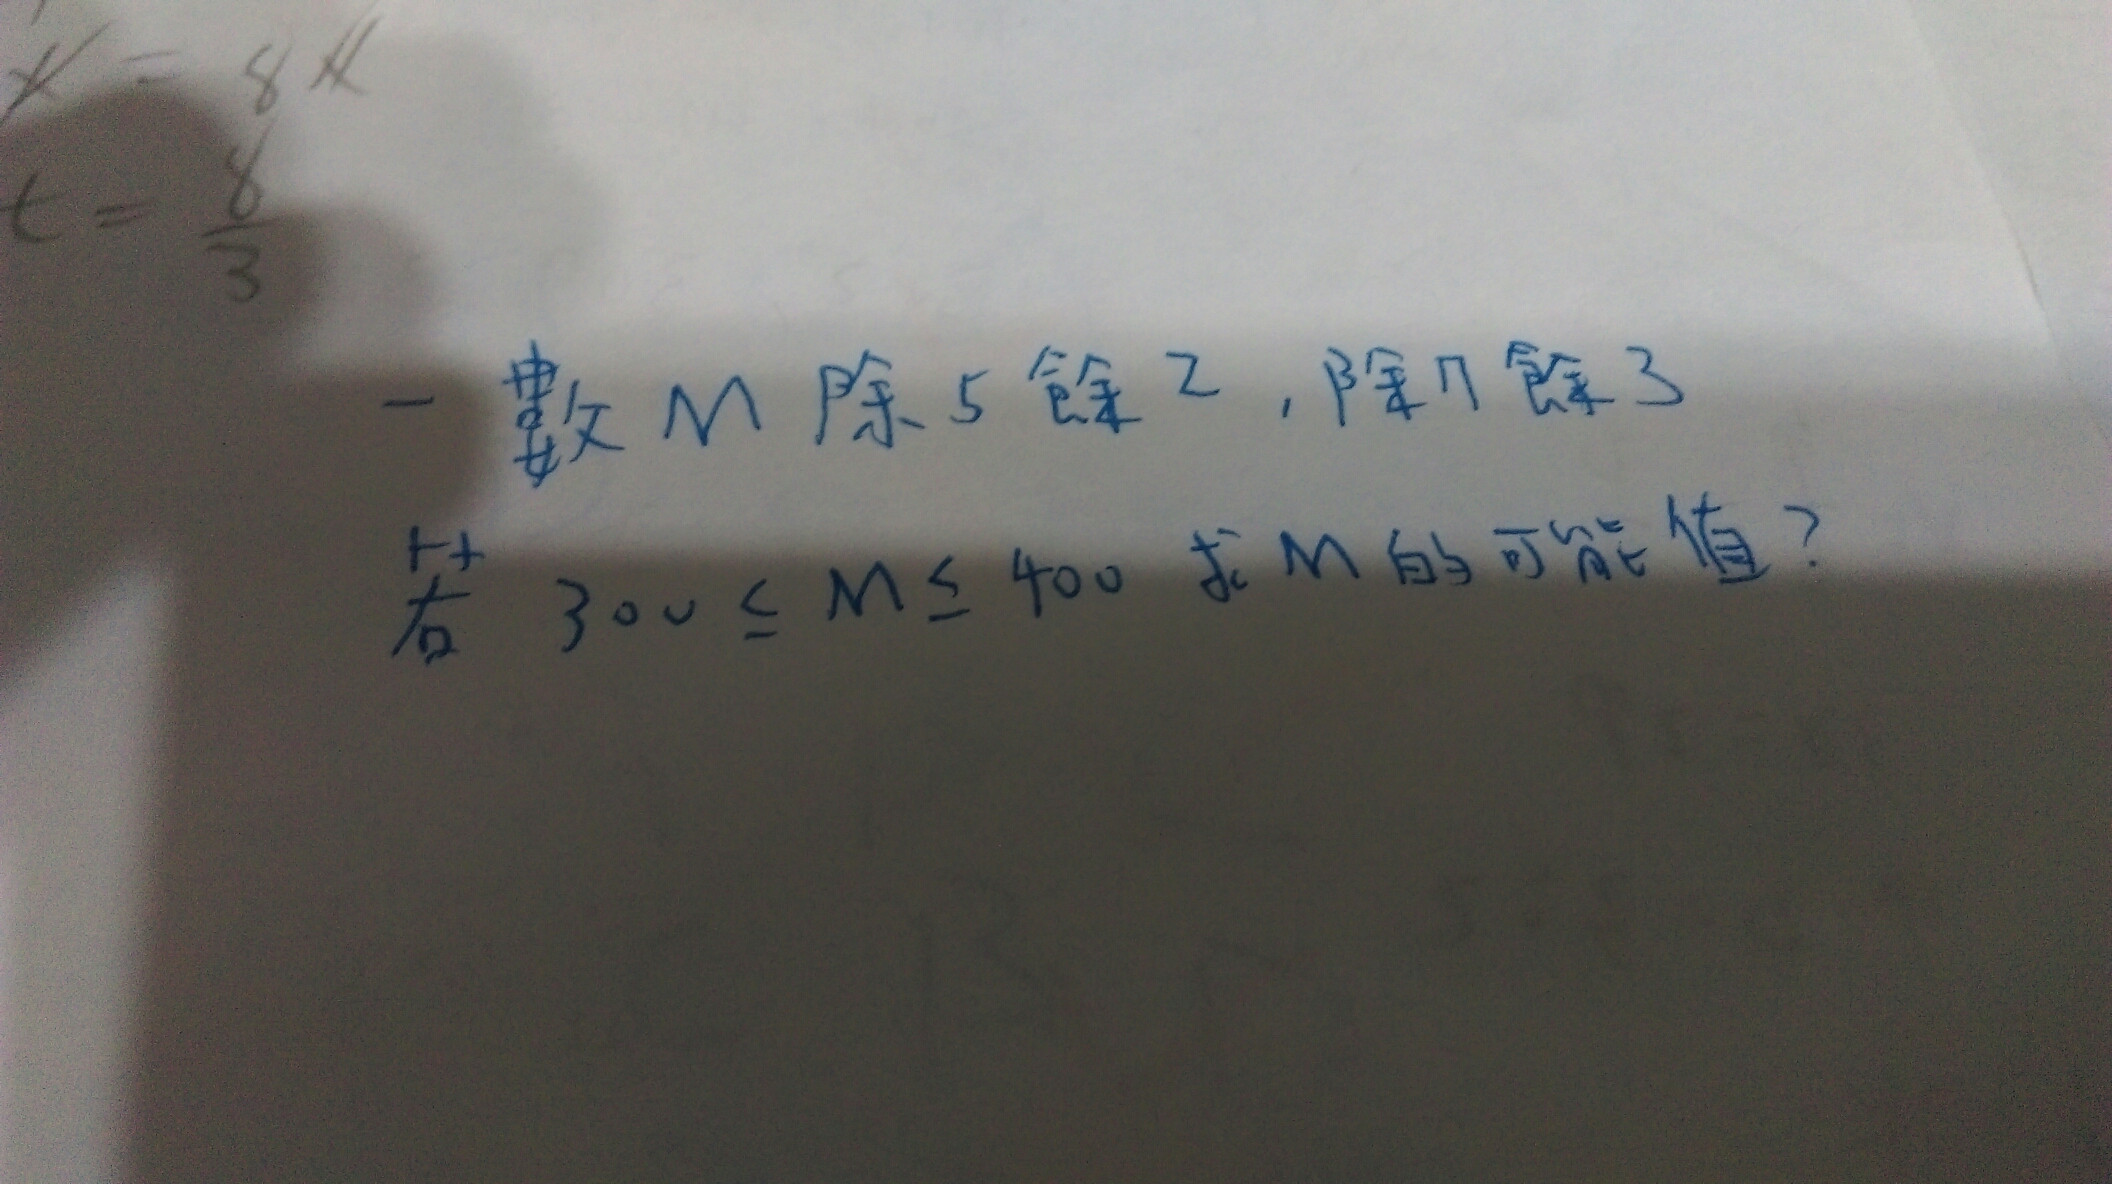 x = 8x
t = 8/3
一數M除5餘2,除7餘3
若 300≤M≤400 求M的可能值?